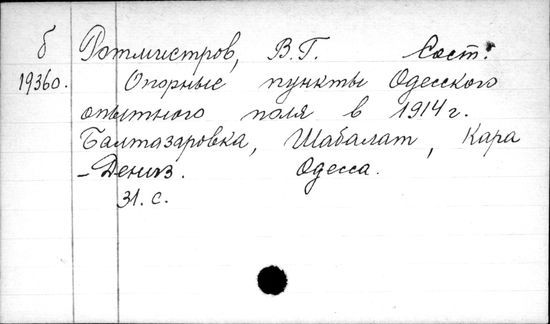 б Ротмистров, В.Г. Сост.
19360. Опорные пункты Одесского
опытного поля в 1914 г.
Балтазаровка, Шабалат, Кара
-Дениз. Одесса.
31. с.